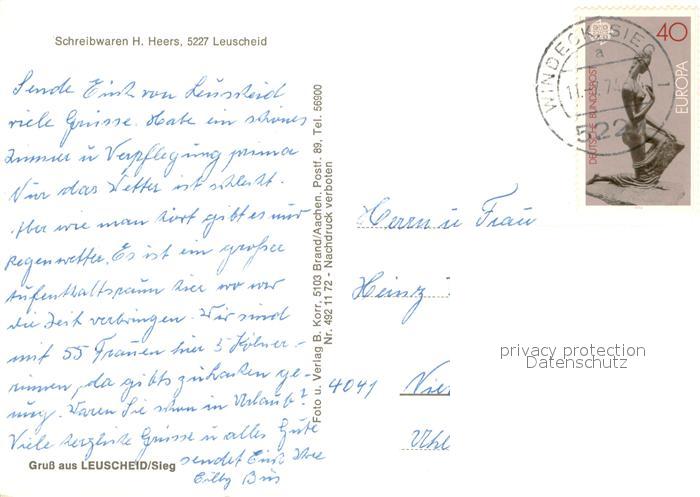 Schreibwaren H. Heers, 5227 Leuscheid
Sende Euch von Leuscheid
viele Grüsse. Habe ein schönes
Zimmer u Verpflegung prima
Nur das Wetter ist schlecht.
Aber wie man hört gibt es nur
Regenwetter. Es ist ein großer
Aufenthaltsraum hier wo wir
die Zeit verbringen. Wir sind
mit 55 Frauen hier 5 Kölner-
innen, da gibts zu lachen ge-
nug. Waren Sie schon in Urlaub?
Viele herzliche Grüsse u alles Gute
sendet Euch Ihre
Gruß aus LEUSCHEID/Sieg
Foto u. Verlag B. Korr, 5103 Brand/Aachen. Postf. 89, Tel. 56900
Nr. 492 11 72 - Nachdruck verboten
WINDECK, SIEG
a
522
40
EUROPA
DEUTSCHE BUNDESPOST
Herrn u Frau
Heinz
4041
privacy protection
Datenschutz